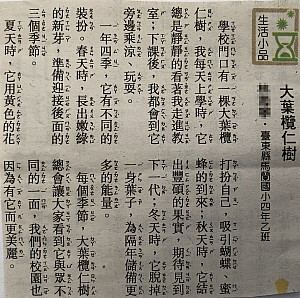 生活小品
大葉欖仁樹
臺東縣馬蘭國小四年乙班
學校門口有一棵大葉欖
仁樹，我每天上學時，它
總是靜靜的看著我走進教
室；下課後，我都會到它
旁邊乘涼、玩耍。
一年四季，它有不同的
裝扮。春天時，長出嫩綠
的新芽，準備迎接後面的
三個季節。
夏天時，它用黃色的花
打扮自己，吸引蝴蝶、蜜
蜂的到來；秋天時，它結
出豐碩的果實，期待見到
下一代；冬天時，它脫掉
一身葉子，為隔年儲備更
多的能量。
每個季節，大葉欖仁樹
總會讓大家看到它與眾不
同的一面，我們的校園
因為有它而更美麗。